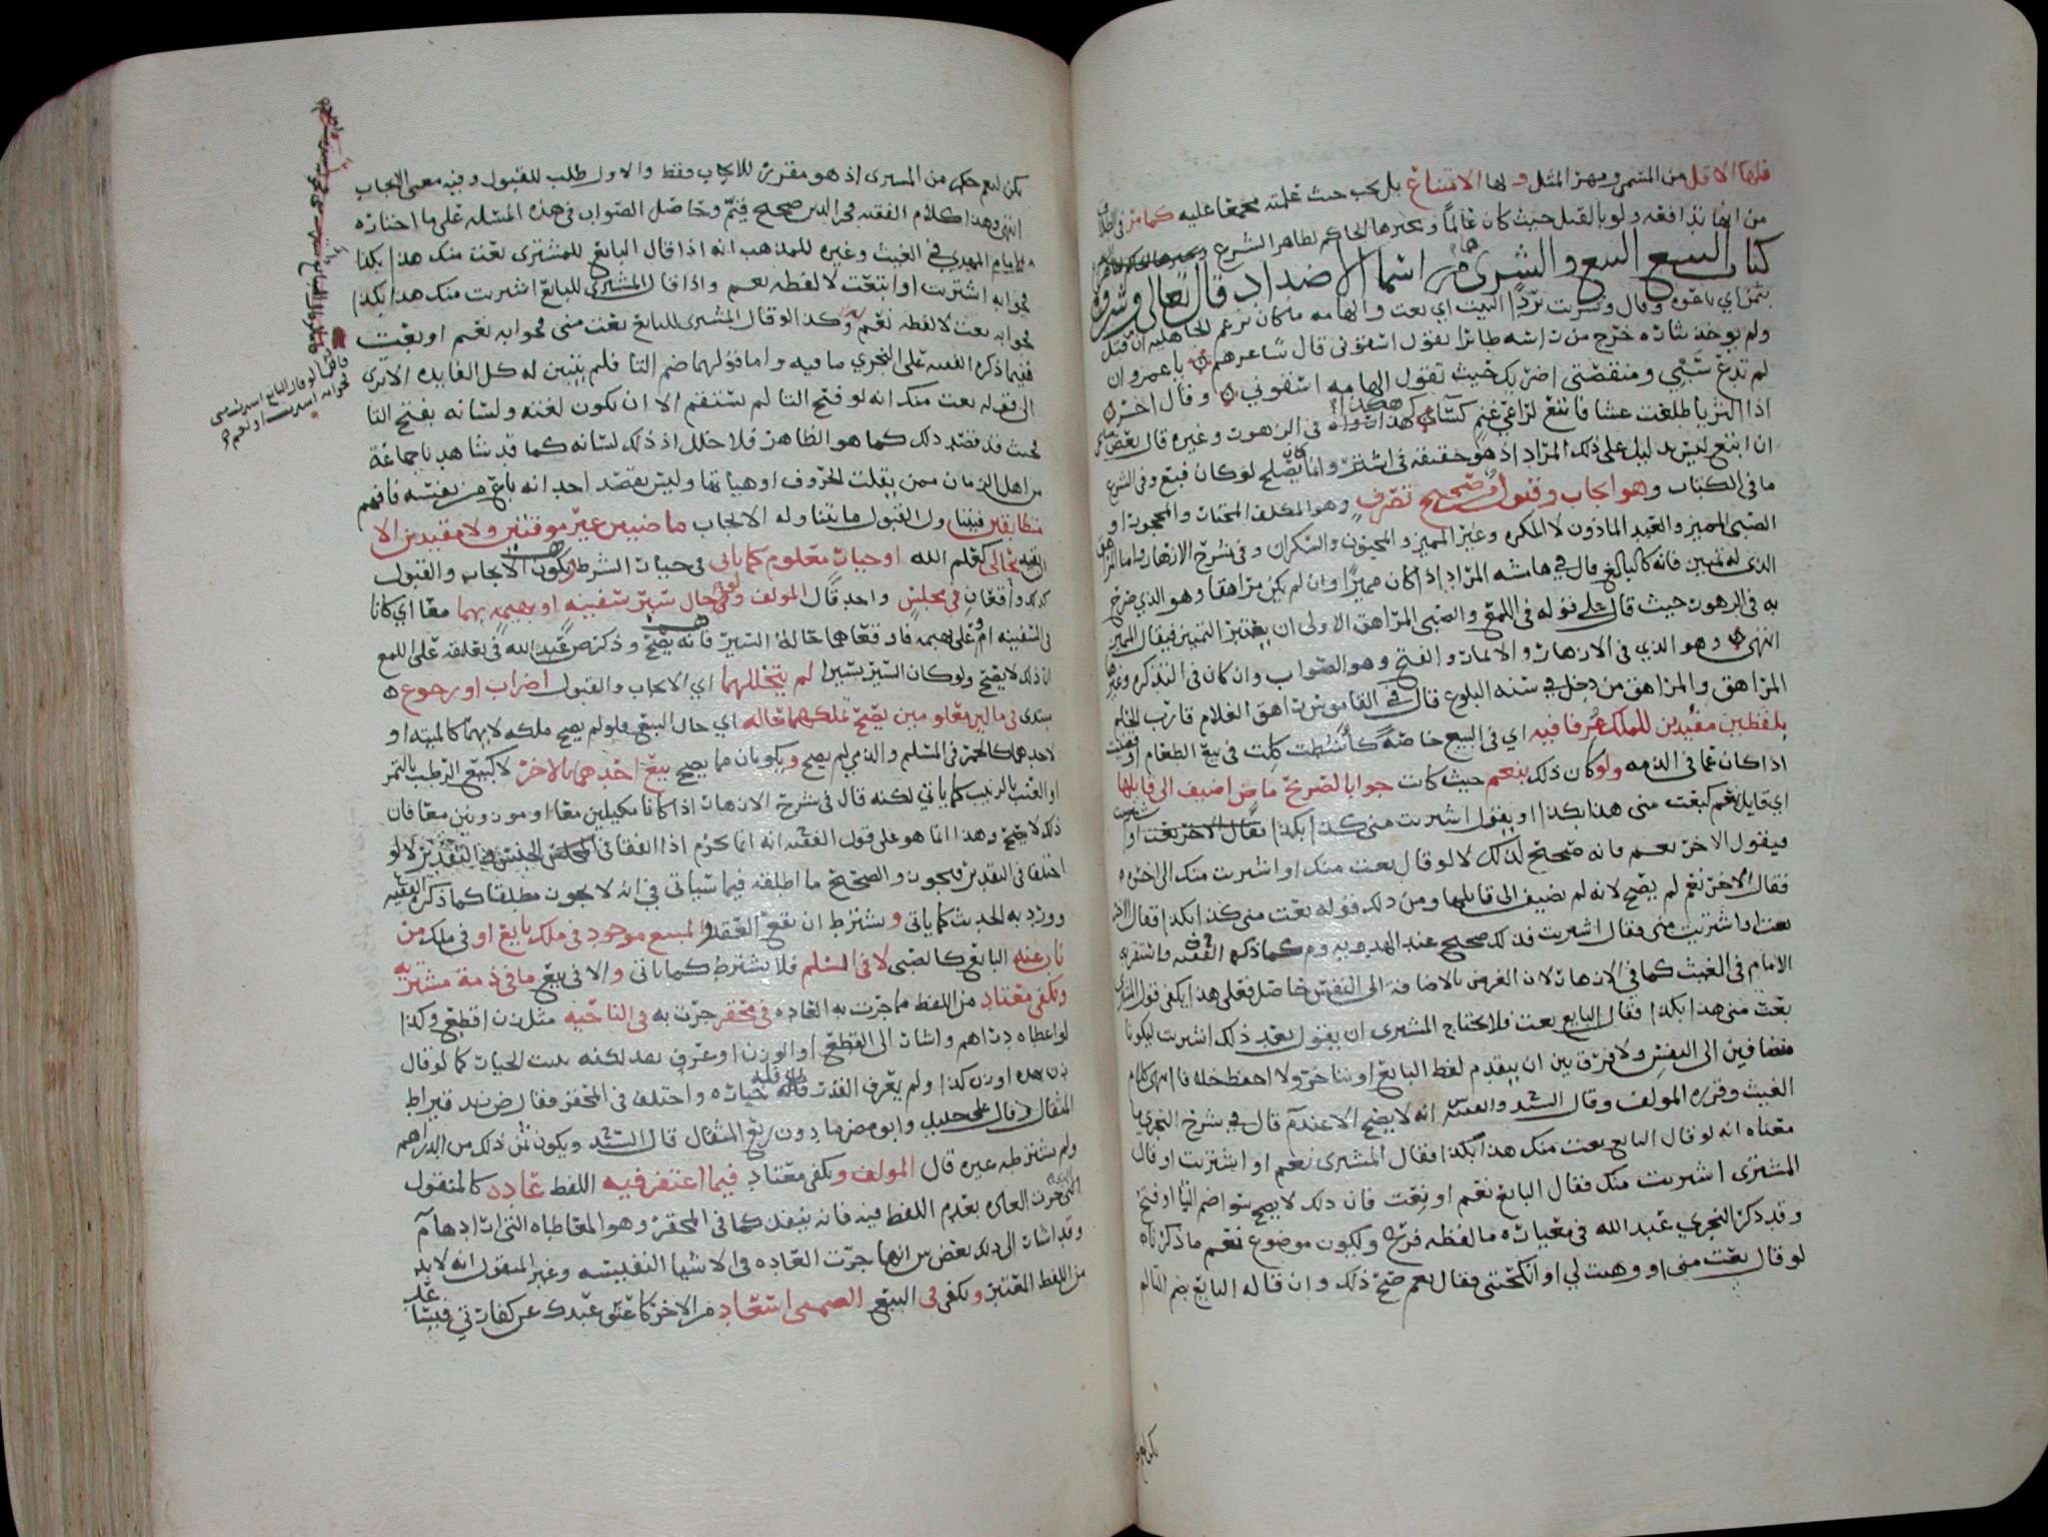 فلها الاقل من المسمى ومهر المثل ولها الامتناع بل يجب حيث علمته مجمعا عليه كما مر في الطلاق
من انها تدافعه ولو بالقتل حيث كان عالما ويجبرها الحاكم لظاهر الشرع
كتاب البيع البيع والشرى هما من اسماء الاضداد قال تعالى وشروه
بثمن اي باعوه وقال وشريت بردا البيت اي بعت والهامه مكان تزعم الجاهليه ان من قتل
ولم يوخذ بثاره خرج من راسه طائرا يقول اسقوني قال شاعرهم يا عمرو ان
لم تدع شتمي ومنقصتي اضربك حيث تقول الهامه اسقوني وقال اخر
اذا الثريا طلعت عشا فابتع لراعي غنم كسا هكذا رواه في الزهور وغيره قال بعض
ان ابتع ليس بدليل على ذلك المراد اذ هو حقيقه في اشتر وانما كان يصلح لو كان فبع وفي الشرع
ما في الكتاب وهو ايجاب وقبول من صحيح تصرف وهو المكلف المختار والمحجور او
الصبي المميز والعبد الماذون لا المكره وغير المميز والمجنون والسكران وفي شرح الازهار واما المراهق
الذي له تمييز فانه كالبالغ قال في هامشه المراد اذا كان مميزا وان لم يكن مراهقا وهو الذي صرح
به في الزهور حيث قال على قوله في اللمع والصبي المراهق الاولى ان يعتبر التمييز فيقال المميز
انتهى وهو الذي في الازهار والاثمار والفتح وهو الصواب وان كان في التذكره وغيرها
المراهق والمراهق من دخل في سنه البلوغ قال في القاموس راهق الغلام قارب الحلم
بلفظين مفيدين للملك عرفا فيه اي في البيع خاصة كاشطت كلت في بيع الطعام او قضيت
اذا كان عما في الذمه ولو كان ذلك بنعم حيث كانت جوابا لصريح ماض اضيف الى قايلها
اي قايل نعم كبعت مني هذا بكذا او يقول اشتريت مني كذا بكذا
فيقول الاخر نعم فانه صحيح لذلك لا لو قال بعت منك او اشتريت منك الى اخره
فقال الاخر نعم لم يصح لانه لم يضيف الى قايلها ومن ذلك قوله بعت مني كذا بكذا فقال الاخر
بعت او اشتريت مني فقال اشتريت فذلك صحيح عند الهدويه وم كما ذكره الفقيه ف واستقربه
الامام في الغيث كما في الازهار لان الغرض بالاضافة الى النفس حاصل فعلى هذا يكفي قول المشتري
بعت مني هذا بكذا فقال البايع بعت فلا يحتاج المشتري ان يقول بعد ذلك اشتريت ليكونا
مضافين الى النفس ولا فرق بين ان يتقدم لفظ البايع او يتاخر ولا احفظ خلافا انتهى كلام
الغيث وقرره المولف وقال السيد والفقيه س انه لا يصح الا عند م قال في شرح النجري ما
معناه انه لو قال البايع بعت منك هذا بكذا فقال المشتري نعم او اشتريت او قال
المشتري اشتريت منك فقال البايع نعم او بعت فان ذلك لا يصح سوا ضم التا او فتح
وقد ذكر النجري عبد الله في معياره ما لفظه فرع ولكون موضوع نعم ما ذكرناه
لو قال بعت مني او وهبت لي او انكحتني فقال نعم صح ذلك وان قاله البايع بضم التا لم
يكن لنعم حكم من المشتري اذ هو مقرر للايجاب فقط والاول طلب للقبول وفيه معنى الايجاب
انتهى وهذا كلام الفقيه فخر الدين صحيح قيم وحاصل الصواب في هذه المسئله على ما اختاره
الامام المهدي في الغيث وغيره للمذهب انه اذا قال البايع للمشتري بعت منك هذا بكذا
فجوابه اشتريت او ابتعت لا لفظه نعم واذا قال المشتري للبايع اشتريت منك هذا بكذا
فجوابه بعت لا لفظه نعم وكذا لو قال المشتري للبايع بعت مني فجوابه نعم او بعت
ففيما ذكره الفقيه علي النجري ما فيه واما قولهما ضم التا فلم يتبين له كل الفايده الا ترى
الى قوله بعت منك انه لو فتح التا لم يستقم الا ان يكون لغته ولسانه بفتح التا
بحيث قد قصد ذلك كما هو الظاهر فلا خلل اذ ذلك لسانه كما قد شاهدنا جماعة
من اهل الزمان ممن يقلب الحروف او هيأتها وليس يقصد احد انه باع من نفسه فافهم
متطابقين فيتناول القبول ما تناوله الايجاب ماضيين غير موقتين ولا مقيدين الا
بقيد حالي كقلم الله او خيار معلوم كما ياتي في خيار الشرط ويكون الايجاب والقبول
قد وقعا في مجلس واحد قال المولف ولو في حال سير سفينه او بهيمه بهما معا اي كانا
في السفينه او على بهيمه فاوقعاهما حالة السير فانه يصح وذكر ص عبد الله في تعليقه على اللمع
ان ذلك لا يصح ولو كان السير يسيرا لم يتخللهما اي الايجاب والقبول اضراب او رجوع
مبتدي في مالين معلومين يصح تملكهما حاله اي حال البيع فلو لم يصح ملكه لايهما كالميته او
لاحدهما كالخمر في المسلم والذمي لم يصح ويكونان مما يصح بيع احدهما بالاخر لا كبيع الرطب بالتمر
او العنب بالزبيب كما ياتي لكنه قال في شرح الازهار اذا كانا مكيلين معا او موزونين معا فان
ذلك لا يصح وهذا انما هو على قول الفقيه انه انما يحرم اذا اتفقا في الجنس والتقدير لا لو
اختلفا في التقدير فيجوز والصحيح ما اطلقه فيما سياتي في انه لا يجوز مطلقا كما ذكره الفقيه
وورد به الحديث كما ياتي ويشترط ان يقع العقد والمبيع موجود في ملك بايع او في ملك من
ناب عنه البايع كالصبي لا في السلم فلا يشترط كما ياتي والا في بيع ما في ذمة مشتريه
ويكفي معتاد من اللفظ ما جرت به العاده في محقر جرت به في الناحيه مثل زن اقطع وكذا
لو اعطاه دراهم واشار الى القطع او الوزن او عرف بعد لكنه يثبت الخيار كما لو قال
زن بهذه او زن كذا ولم يعرف القدر فان له خياره واختلف في المحقر فقال ض زيد قيراط
المثقال وقال علي خليل وابو مضر ما دون ربع المثقال قال السيد ويكون ثمن ذلك من الدراهم
ولم يشترطه غيره قال المولف ويكفي معتاد فيما اغتفر فيه اللفظ عاده كالمنقول
الذي جرت العاده بعدم اللفظ فيه فانه ينفذ كما في المحقر وهو المعاطاه التي ارادها م
وقد اشار الى ذلك بعض س انها جرت العاده في الاشيا النفيسه وغير المنقول انه لا بد
من اللفظ المعتبر ويكفي في البيع الضمني استدعا من الاخر كاعتق عبدك عن كفارتي فيسا